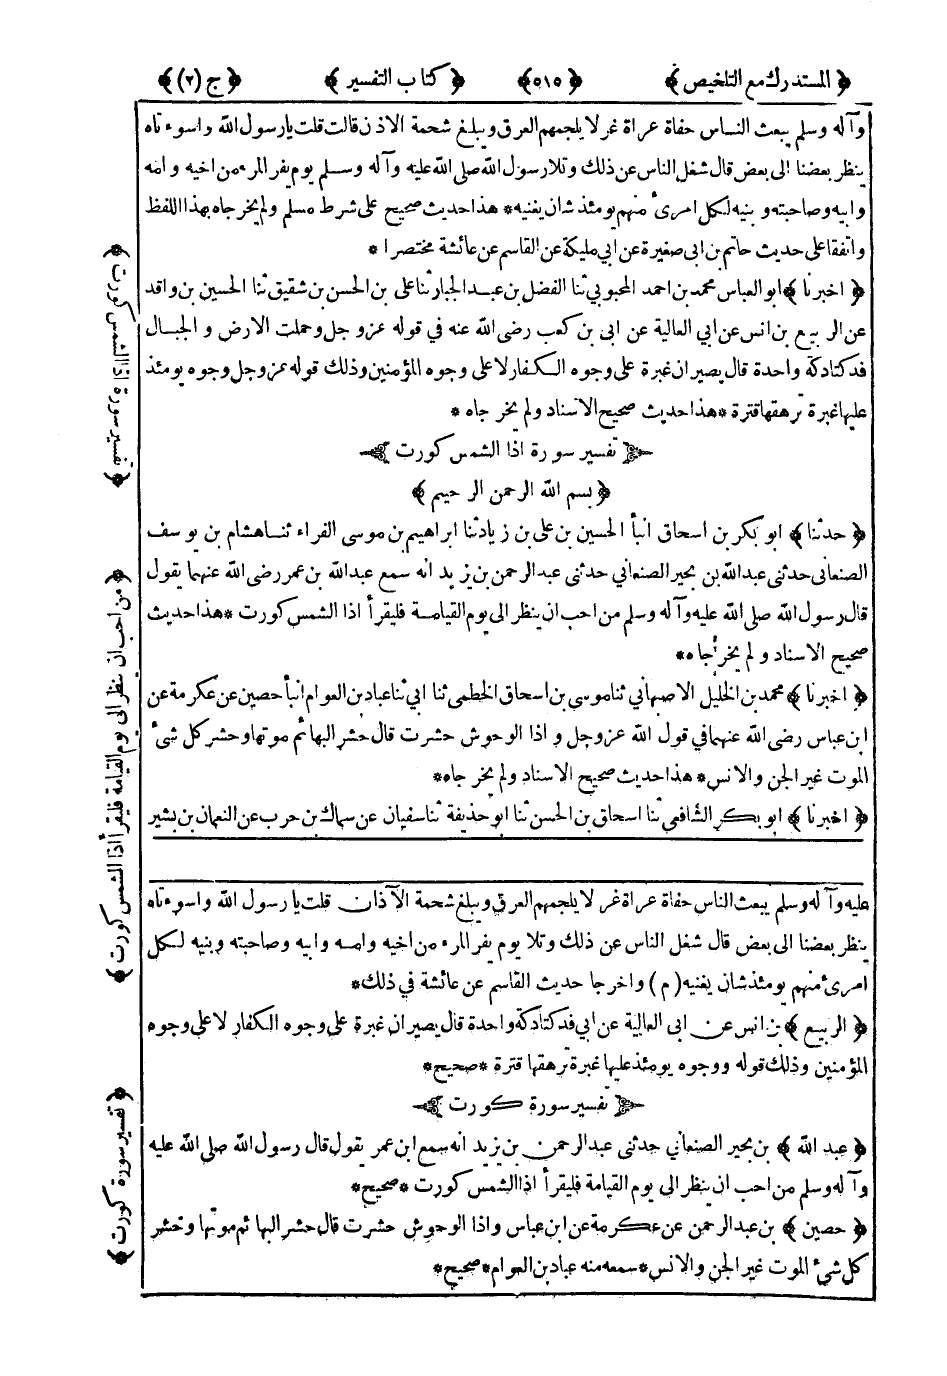 ﴿ المستدرك مع التلخيص ﴾ ﴿ ٥١٥ ﴾ ﴿ كتاب التفسير ﴾ ﴿ ج (٢) ﴾
وآله وسلم يبعث الناس حفاة عراة غرلا يلجمهم العرق ويبلغ شحمة الاذن قالت قلت يا رسول الله واسوءتاه
ينظر بعضنا الى بعض قال شغل الناس عن ذلك وتلا رسول الله صلى الله عليه وآله وسلم يوم يفر المرء من اخيه وامه
وابيه وصاحبته وبنيه لكل امرئ منهم يومئذ شان يغنيه * هذا حديث صحيح على شرط مسلم ولم يخرجاه بهذا اللفظ
واتفقا على حديث حاتم بن ابى صغيرة عن ابي مليكة عن القاسم عن عائشة مختصرا *
﴿ اخبرنا ﴾ ابو العباس محمد بن احمد المحبوبي ثنا الفضل بن عبد الجبار ثنا على بن الحسن بن شقيق ثنا الحسين بن واقد
عن الربيع بن انس عن ابي العالية عن ابى بن كعب رضى الله عنه في قوله عزوجل وحملت الارض والجبال
فدكتا دكة واحدة قال يصيران غبرة على وجوه الكفار لا على وجوه المؤمنين وذلك قوله عزوجل وجوه يومئذ
عليها غبرة ترهقها قترة * هذا حديث صحيح الاسناد ولم يخرجاه *
تفسير سورة اذا الشمس كورت
﴿ بسم الله الرحمن الرحيم ﴾
﴿ حدثنا ﴾ ابو بكر بن اسحاق انبأ الحسين بن على بن زياد ثنا ابراهيم بن موسى الفراء ثنا هشام بن يوسف
الصنعانى حدثنى عبد الله بن بحير الصنعاني حدثنى عبد الرحمن بن زيد انه سمع عبد الله بن عمر رضى الله عنهما يقول
قال رسول الله صلى الله عليه وآله وسلم من احب ان ينظر الى يوم القيامة فليقرأ اذا الشمس كورت * هذا حديث
صحيح الاسناد ولم يخرجاه *
﴿ اخبرنا ﴾ محمد بن الخليل الاصبهاني ثنا موسى بن اسحاق الخطمى ثنا ابي ثنا عباد بن العوام انبأ حصين عن عكرمة عن
ابن عباس رضى الله عنهما في قول الله عزوجل واذا الوحوش حشرت قال حشر البهائم موتها وحشر كل شئ
الموت غير الجن والانس * هذا حديث صحيح الاسناد ولم يخرجاه *
﴿ اخبرنا ﴾ ابو بكر الشافعي ثنا اسحاق بن الحسن ثنا ابو حذيفة ثنا سفيان عن سماك بن حرب عن النعمان بن بشير
عليه وآله وسلم يبعث الناس حفاة عراة غرلا يلجمهم العرق ويبلغ شحمة الآذان قلت يا رسول الله واسوءتاه
ينظر بعضنا الى بعض قال شغل الناس عن ذلك وتلا يوم يفر المرء من اخيه وامه وابيه وصاحبته وبنيه لكل
امرئ منهم يومئذ شان يغنيه (م) واخرجا حديث القاسم عن عائشة في ذلك *
﴿ الربيع ﴾ بن انس عن ابى العالية عن ابي فدكتا دكة واحدة قال يصيران غبرة على وجوه الكفار لا على وجوه
المؤمنين وذلك قوله ووجوه يومئذ عليها غبرة ترهقها قترة * صحيح *
تفسير سورة كورت
﴿ عبد الله ﴾ بن بحير الصنعاني حدثنى عبد الرحمن بن يزيد انه سمع ابن عمر يقول قال رسول الله صلى الله عليه
وآله وسلم من احب ان ينظر الى يوم القيامة فليقرأ اذا الشمس كورت * صحيح *
﴿ حصين ﴾ بن عبد الرحمن عن عكرمة عن ابن عباس واذا الوحوش حشرت قال حشر البهائم موتها وحشر
كل شئ الموت غير الجن والانس * سمعه منه عباد بن العوام * صحيح *
﴿ تفسير سورة اذا الشمس كورت ﴾
﴿ من احب ان ينظر الى يوم القيامة فليقرأ اذا الشمس كورت ﴾
﴿ تفسير سورة كورت ﴾